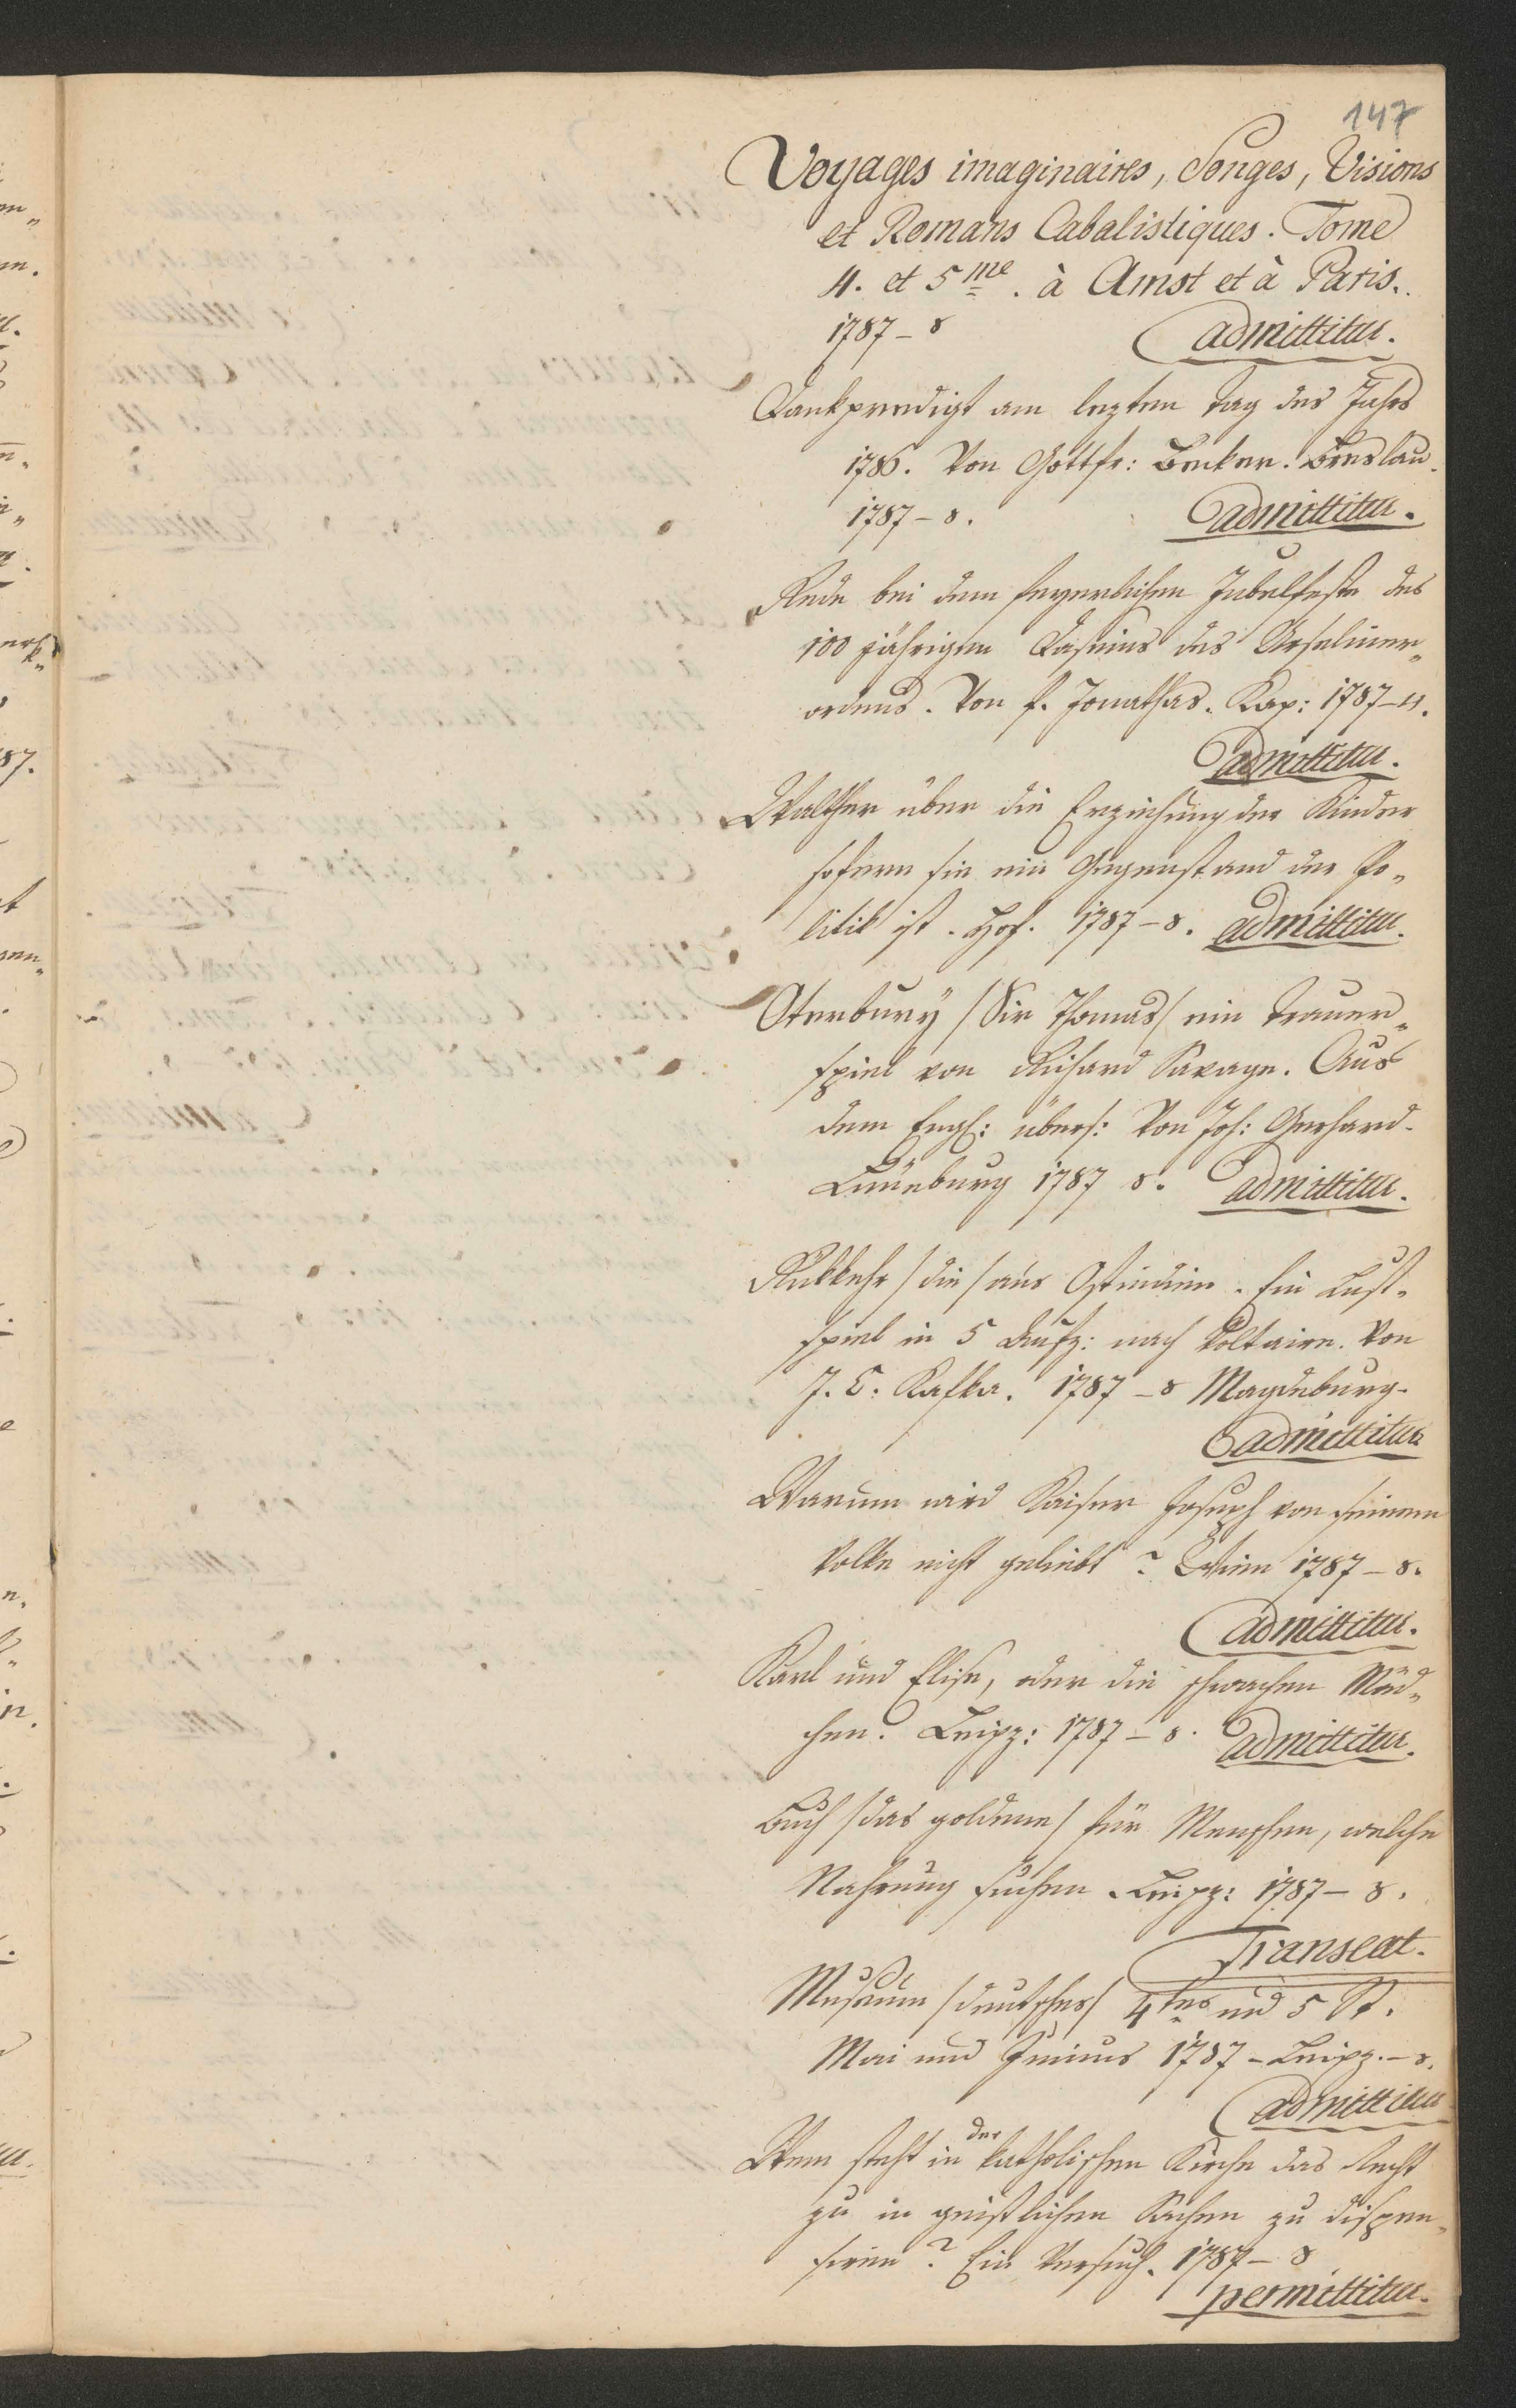 147
Voyages imaginaires, Songes, Visions
et Romans Cabalistiques. Tome
4. et 5me. à Amst et à Paris.
1787 - 8
admittitur.
Dankpredigt am lezten Tag des Jahrs
1786. Von Gottfr: Becker. Breslau.
1787 - 8.
admittitur.
Rede bei dem feyerlichen Jubelfeste des
100 jährigen Daseins des Urseliner„
ordens. Von P. Jonathas. Kap: 1787 - 4.
admittitur.
Walther über die Erziehung der Kinder
sofern sie ein Gegenstand der Po„
litik ist. Hof. 1787 - 8. admittitur.
Oterbury /Sir Thomas/ ein Trauer„
spiel von Richard Savage. Aus
dem Engl: übers: Von Joh: Gerhard.
Lüneburg 1787 8. admittitur.
Rükkehr /die/ aus Ostindien. Ein Lust„
spiel in 5 Aufz: nach Voltaire. Von
J. C. Kafka. 1787 - 8 Magdeburg.
admittitur
Warum wird Kaiser Joseph von seinem
Volke nicht geliebt? Wien 1787 - 8.
admittitur.
Karl und Elise, oder die schwachen Mäd„
chen. Leipz: 1787 - 8. admittitur.
Buch /das goldene/ für Menschen, welche
Nahrung suchen. Leipz: 1787 - 8.
Transeat.
Museum /deutsches/ 4tes und 5 St.
Mai und Junius 1787 - Leipz. - 8.
admittitur
Wem steht in der katholischen Kirche das Recht
zu in geistlichen Sachen zu dispen„
siren? Ein Versuch. 1787 - 8
permittitur.